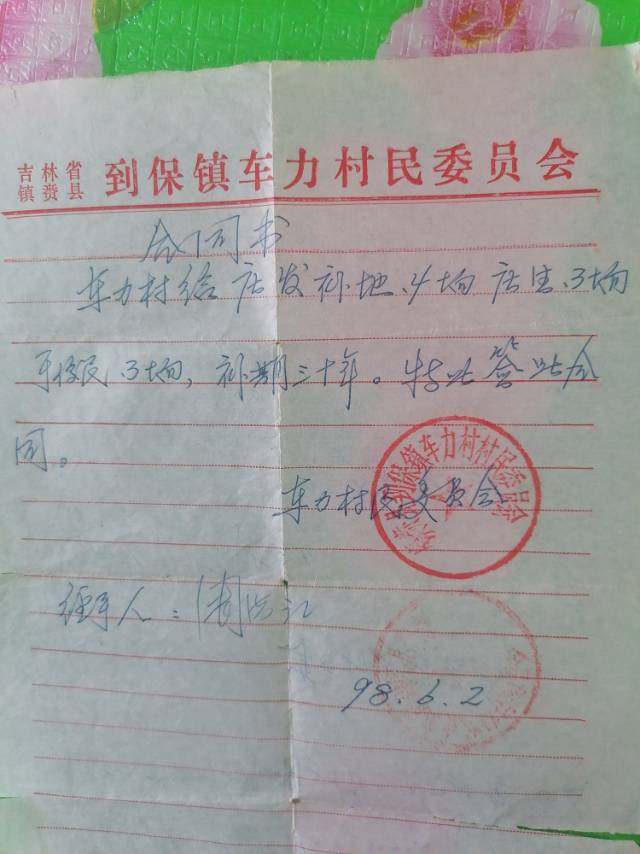 吉林省
镇赉县
到保镇车力村民委员会
合同书
车力村给 发补地4垧 3垧
3垧,补期三十年。特此签此合
同。
车力村民委员会
到保镇车力村村民委员会
经手人:
98.6.2